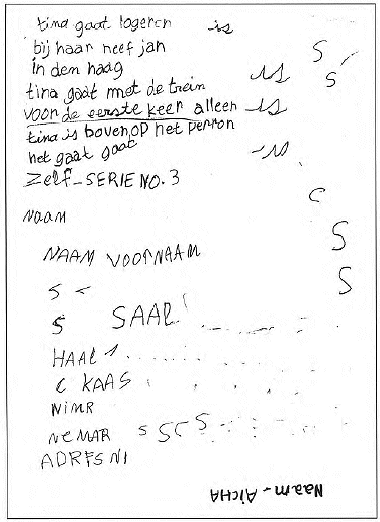 tina gaat logeren -is
bij haar neef jan S
in den haag S
tina gaat met de trein -is
voor de eerste keer alleen -is
tina is boven op het perron
het gaat goat -is
Zelf-SERIE NO. 3
C
NAAM
NAAM VOORNAAM S
S S
S SAAL
HAAL
C KAAS
NiMR
NCMAR S S C S
ADRFS NI
NAAM - AiCHA